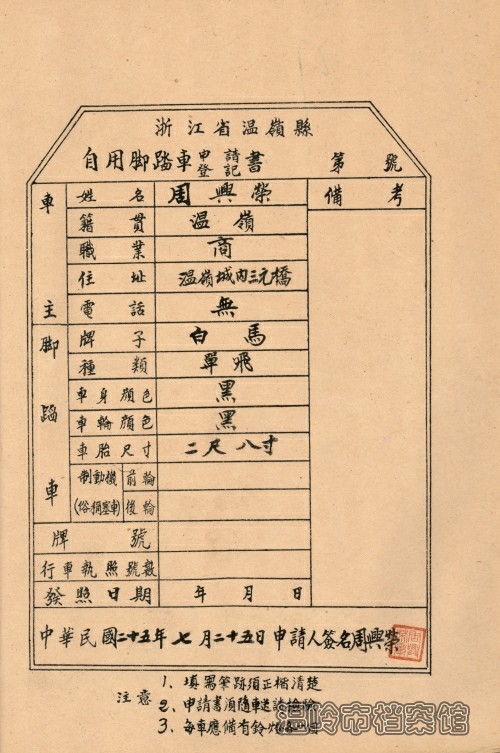 浙江省温嶺縣
自用脚踏車申請登記書 第 號
車主 姓名 周興榮 備考
籍貫 温嶺
職業 商
住址 温嶺城内三元橋
電話 無
脚踏車 牌子 白馬
種類 單飛
車身顔色 黑
車輪顔色 黑
車胎尺寸 二尺八寸
制動機 前輪
(俗稱塞車) 後輪
牌號
行車執照號數
發照日期 年 月 日
中華民國二十五年七月二十五日 申請人簽名周興榮
注意 1、填寫筆跡須正楷清楚
2、申請書須隨車送請檢驗
3、每車應備有鈴燈各一個
温岭市档案馆